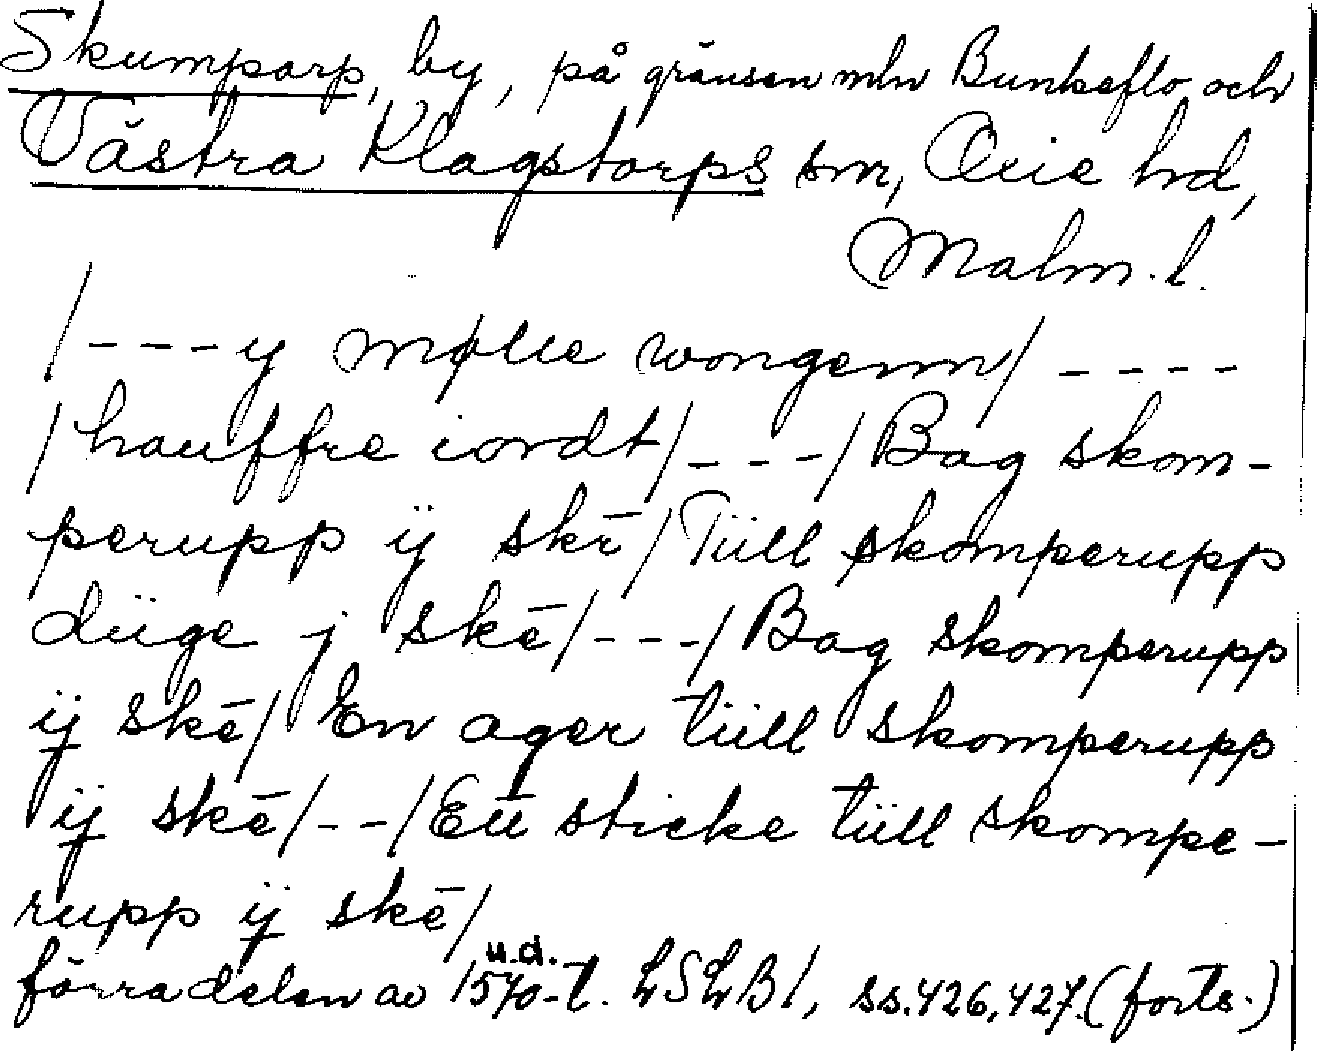 Skumparp, by, på gränsen mln Bunkeflo och
Västra Klagstorps sn, Oxie hd,
Malm. l.
/---y mølle wongenn/----
/hauffre iordt/---/Bag skom-
perupp ij skē/Tiill skomperupp
diige j skē/---/Bag skomperupp
ij skē/ En ager tiill skomperupp
ij skē/--/Eū sticke tiill skompe-
rupp ij skē/
u.d.
förra delen av 1570-t. LSLB1, ss. 426, 427. (forts.)